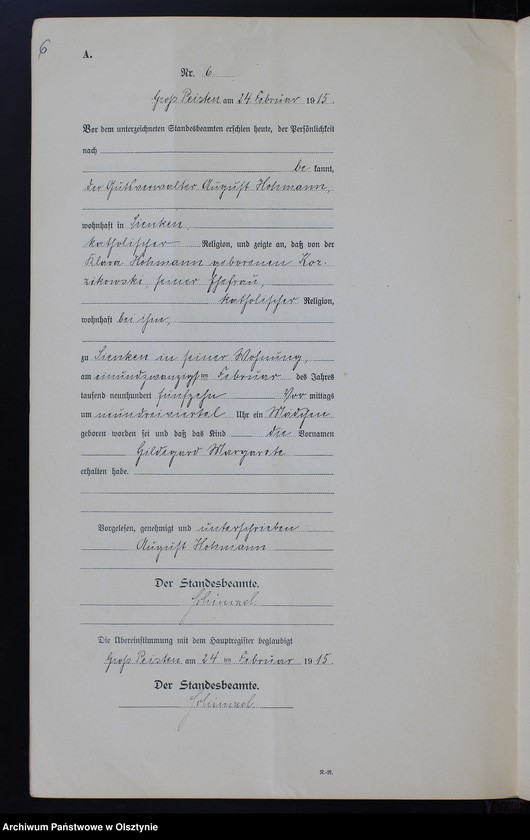 6
A.
Nr. 6
Groß Peisten am 24 Februar 1915.
Vor dem unterzeichneten Standesbeamten erschien heute, der Persönlichkeit
nach
be kannt,
der Gutsverwalter August Hohmann,
wohnhaft in Sienken,
katholischer Religion, und zeigte an, daß von der
Klara Hohmann geborenen Kor-
zikowski, seiner Ehefrau,
katholischer Religion,
wohnhaft bei ihm,
zu Sienken in seiner Wohnung,
am einundzwanzigsten Februar des Jahres
tausend neunhundert fünfzehn Vor mittags
um neundreiviertel Uhr ein Mädchen
geboren worden sei und daß das Kind die Vornamen
Hildegard Margarete
erhalten habe.
Vorgelesen, genehmigt und unterschrieben
August Hohmann
Der Standesbeamte.
Die Übereinstimmung mit dem Hauptregister beglaubigt
Groß Peisten am 24 ten Februar 1915.
Der Standesbeamte.
Archiwum Państwowe w Olsztynie